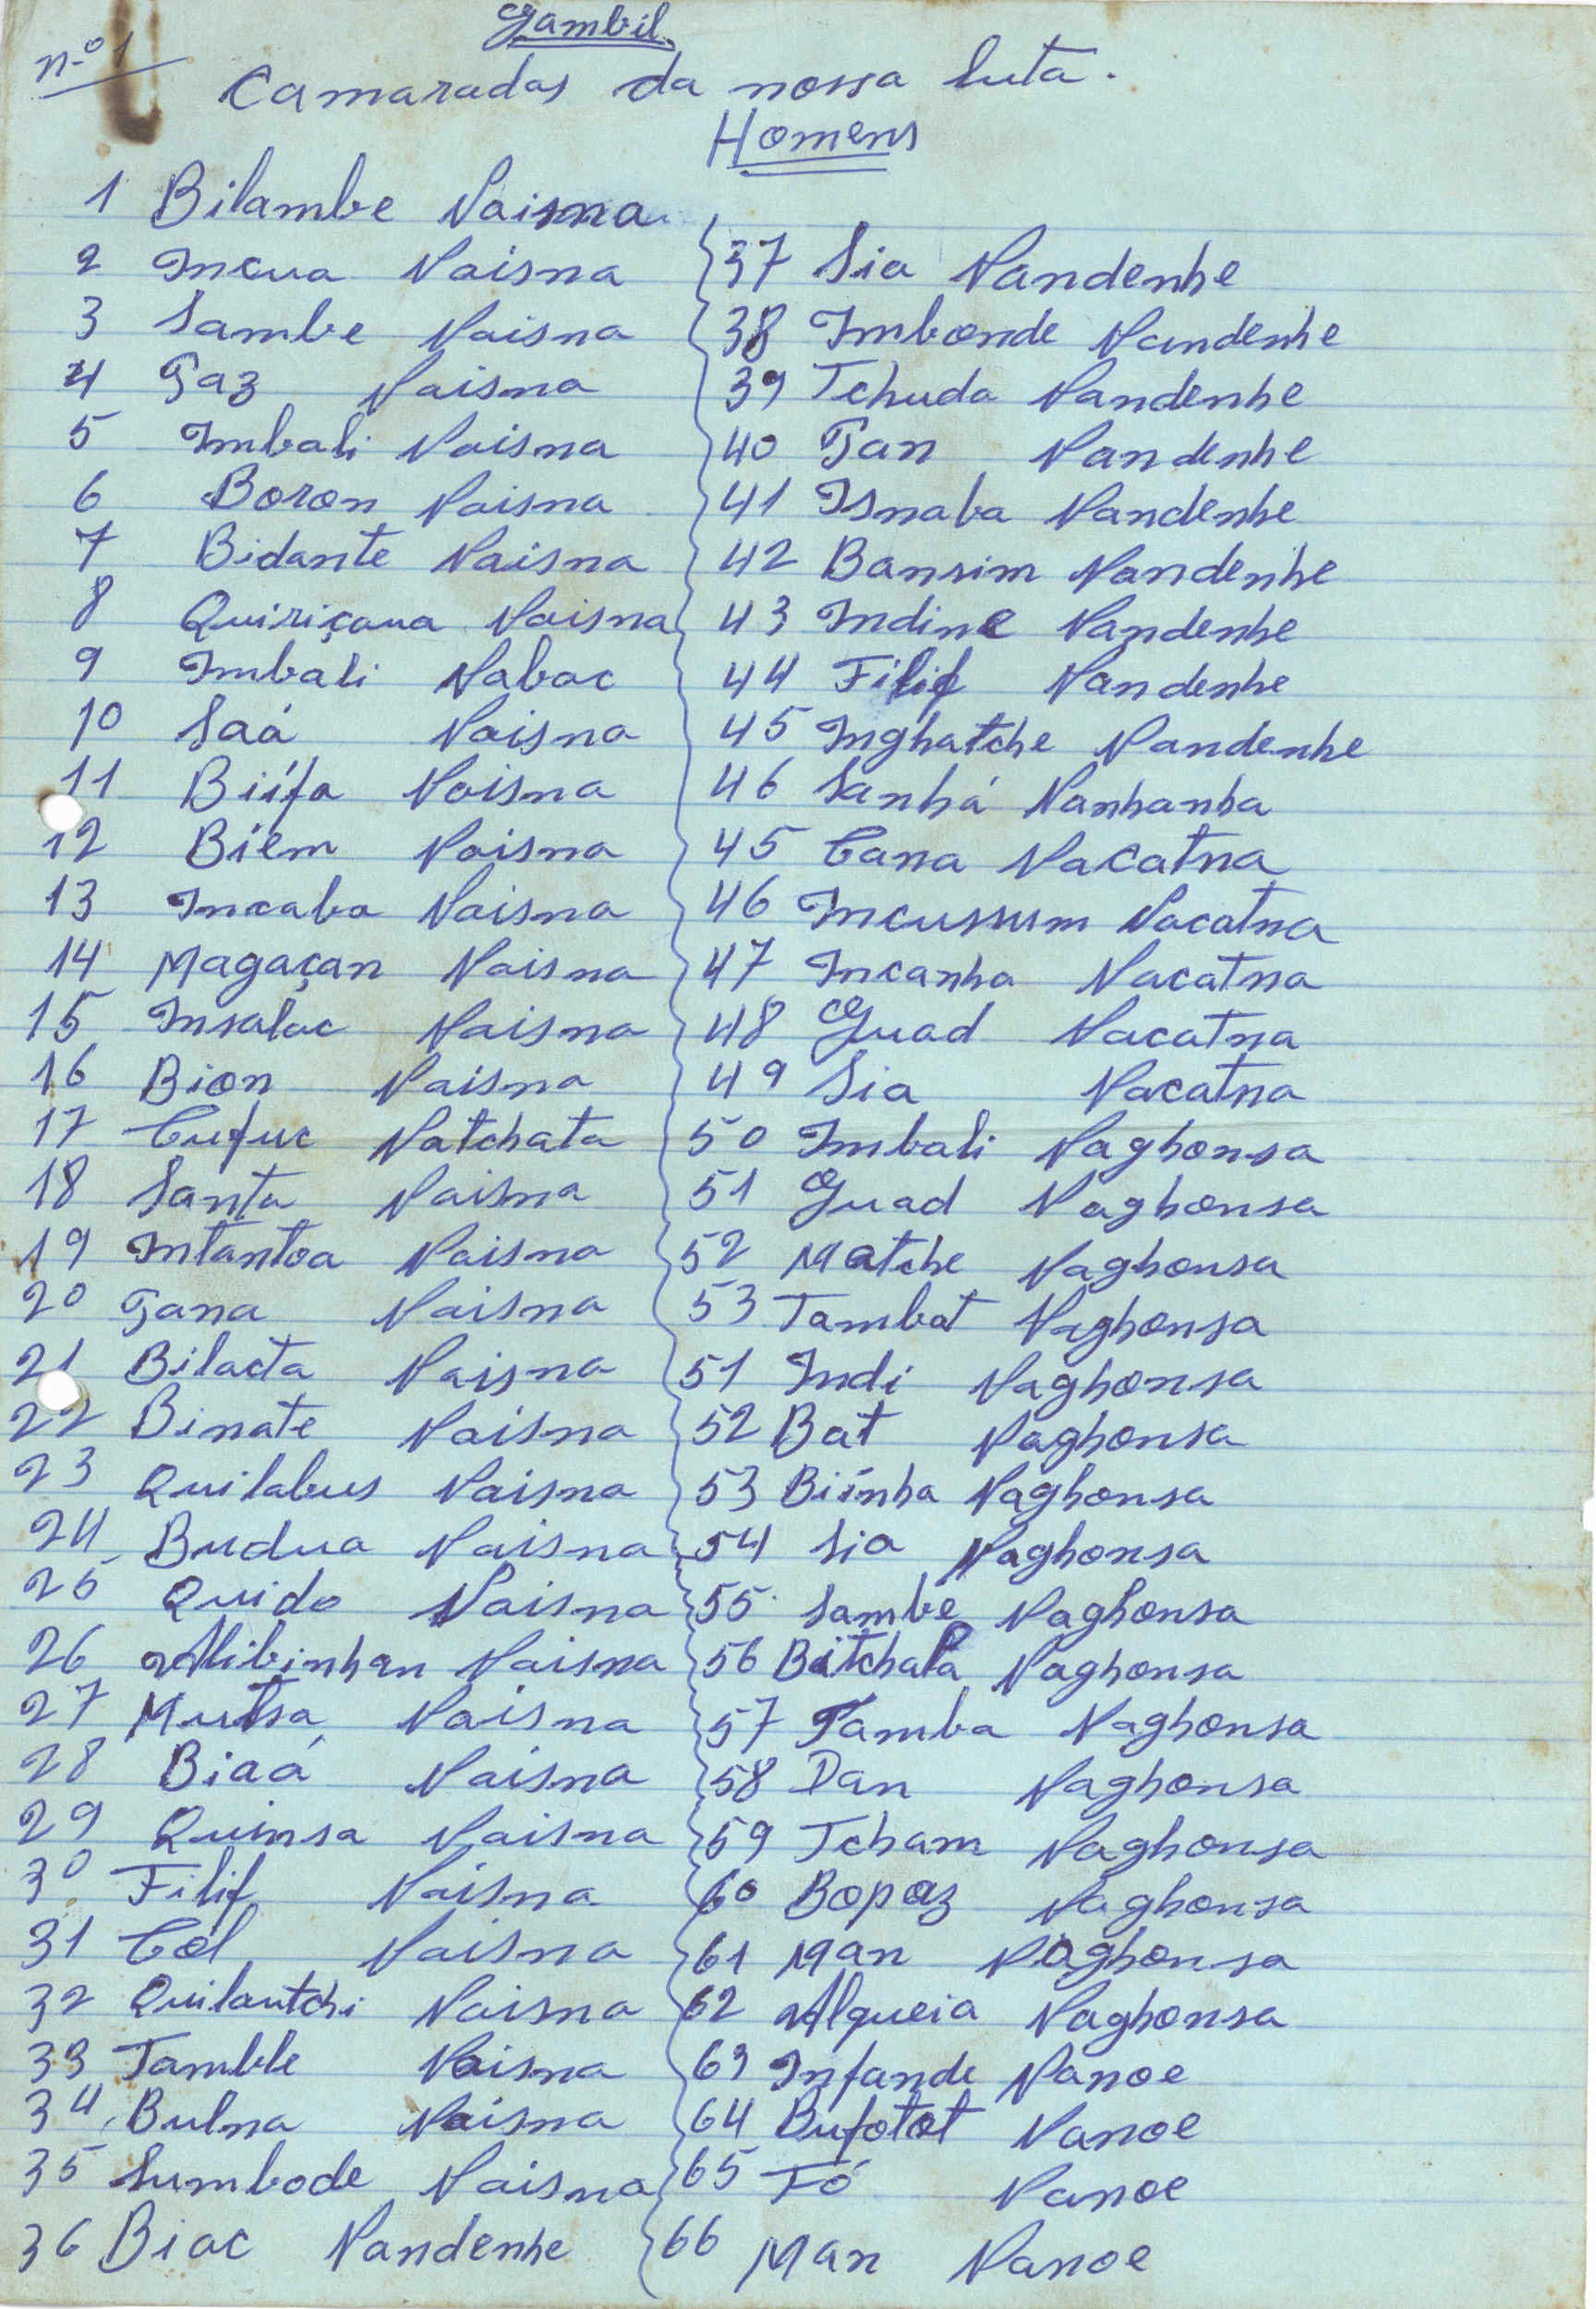 Gambil.
nº 1
Camaradas da nossa luta.
Homens
1 Bilambe Naisna
2 Incua Naisna
3 Sambe Naisna
4 Taz Naisna
5 Imbali Naisna
6 Boron Naisna
7 Bidante Naisna
8 Quiriçaua Naisna
9 Imbali Nabac
10 Saá Naisna
11 Biífa Naisna
12 Biem Naisna
13 Incaba Naisna
14 Magaçan Naisna
15 Insalac Naisna
16 Bion Naisna
17 Cufuc Natchata
18 Santa Naisna
19 Intantoa Naisna
20 Tana Naisna
21 Bilacta Naisna
22 Binate Naisna
23 Quilabus Naisna
24 Budua Naisna
25 Quido Naisna
26 Alibinhan Naisna
27 Mutsa Naisna
28 Biaá Naisna
29 Quinsa Naisna
30 Filif Naisna
31 Col Naisna
32 Quilautchi Naisna
33 Tamble Naisna
34 Bulna Naisna
35 Sumbode Naisna
36 Biac Nandenhe
37 Sia Nandenhe
38 Imbonde Nandenhe
39 Tchuda Nandenhe
40 Tan Nandenhe
41 Isnaba Nandenhe
42 Bansim Nandenhe
43 Indine Nandenhe
44 Filif Nandenhe
45 Inghatche Nandenhe
46 Sanhá Nanhanha
45 Cana Nacatna
46 Incussum Nacatna
47 Incanha Nacatna
48 Guad Nacatna
49 Sia Nacatna
50 Imbali Naghonsa
51 Guad Naghonsa
52 Matche Naghonsa
53 Tambat Naghonsa
51 Indi Naghonsa
52 Bat Naghonsa
53 Biínha Naghonsa
54 Sia Naghonsa
55 Sambé Naghonsa
56 Bitchala Naghonsa
57 Tamba Naghonsa
58 Dan Naghonsa
59 Tcham Naghonsa
60 Bopaz Naghonsa
61 Man Naghonsa
62 Alqueia Naghonsa
63 Infande Nanoe
64 Bufotot Nanoe
65 Fó Nanoe
66 Man Nanoe